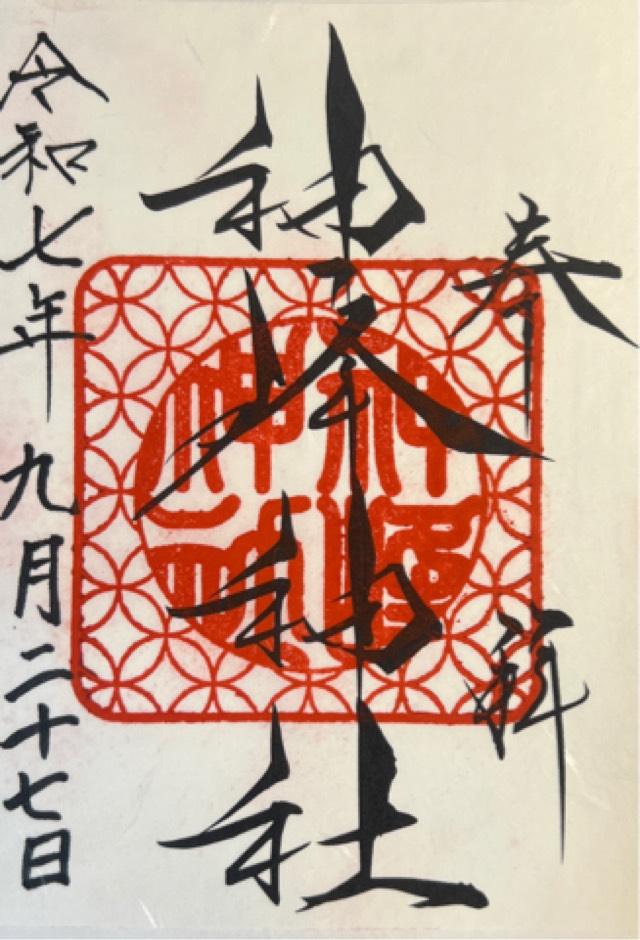 奉拝
神峰神社
令和七年九月二十七日